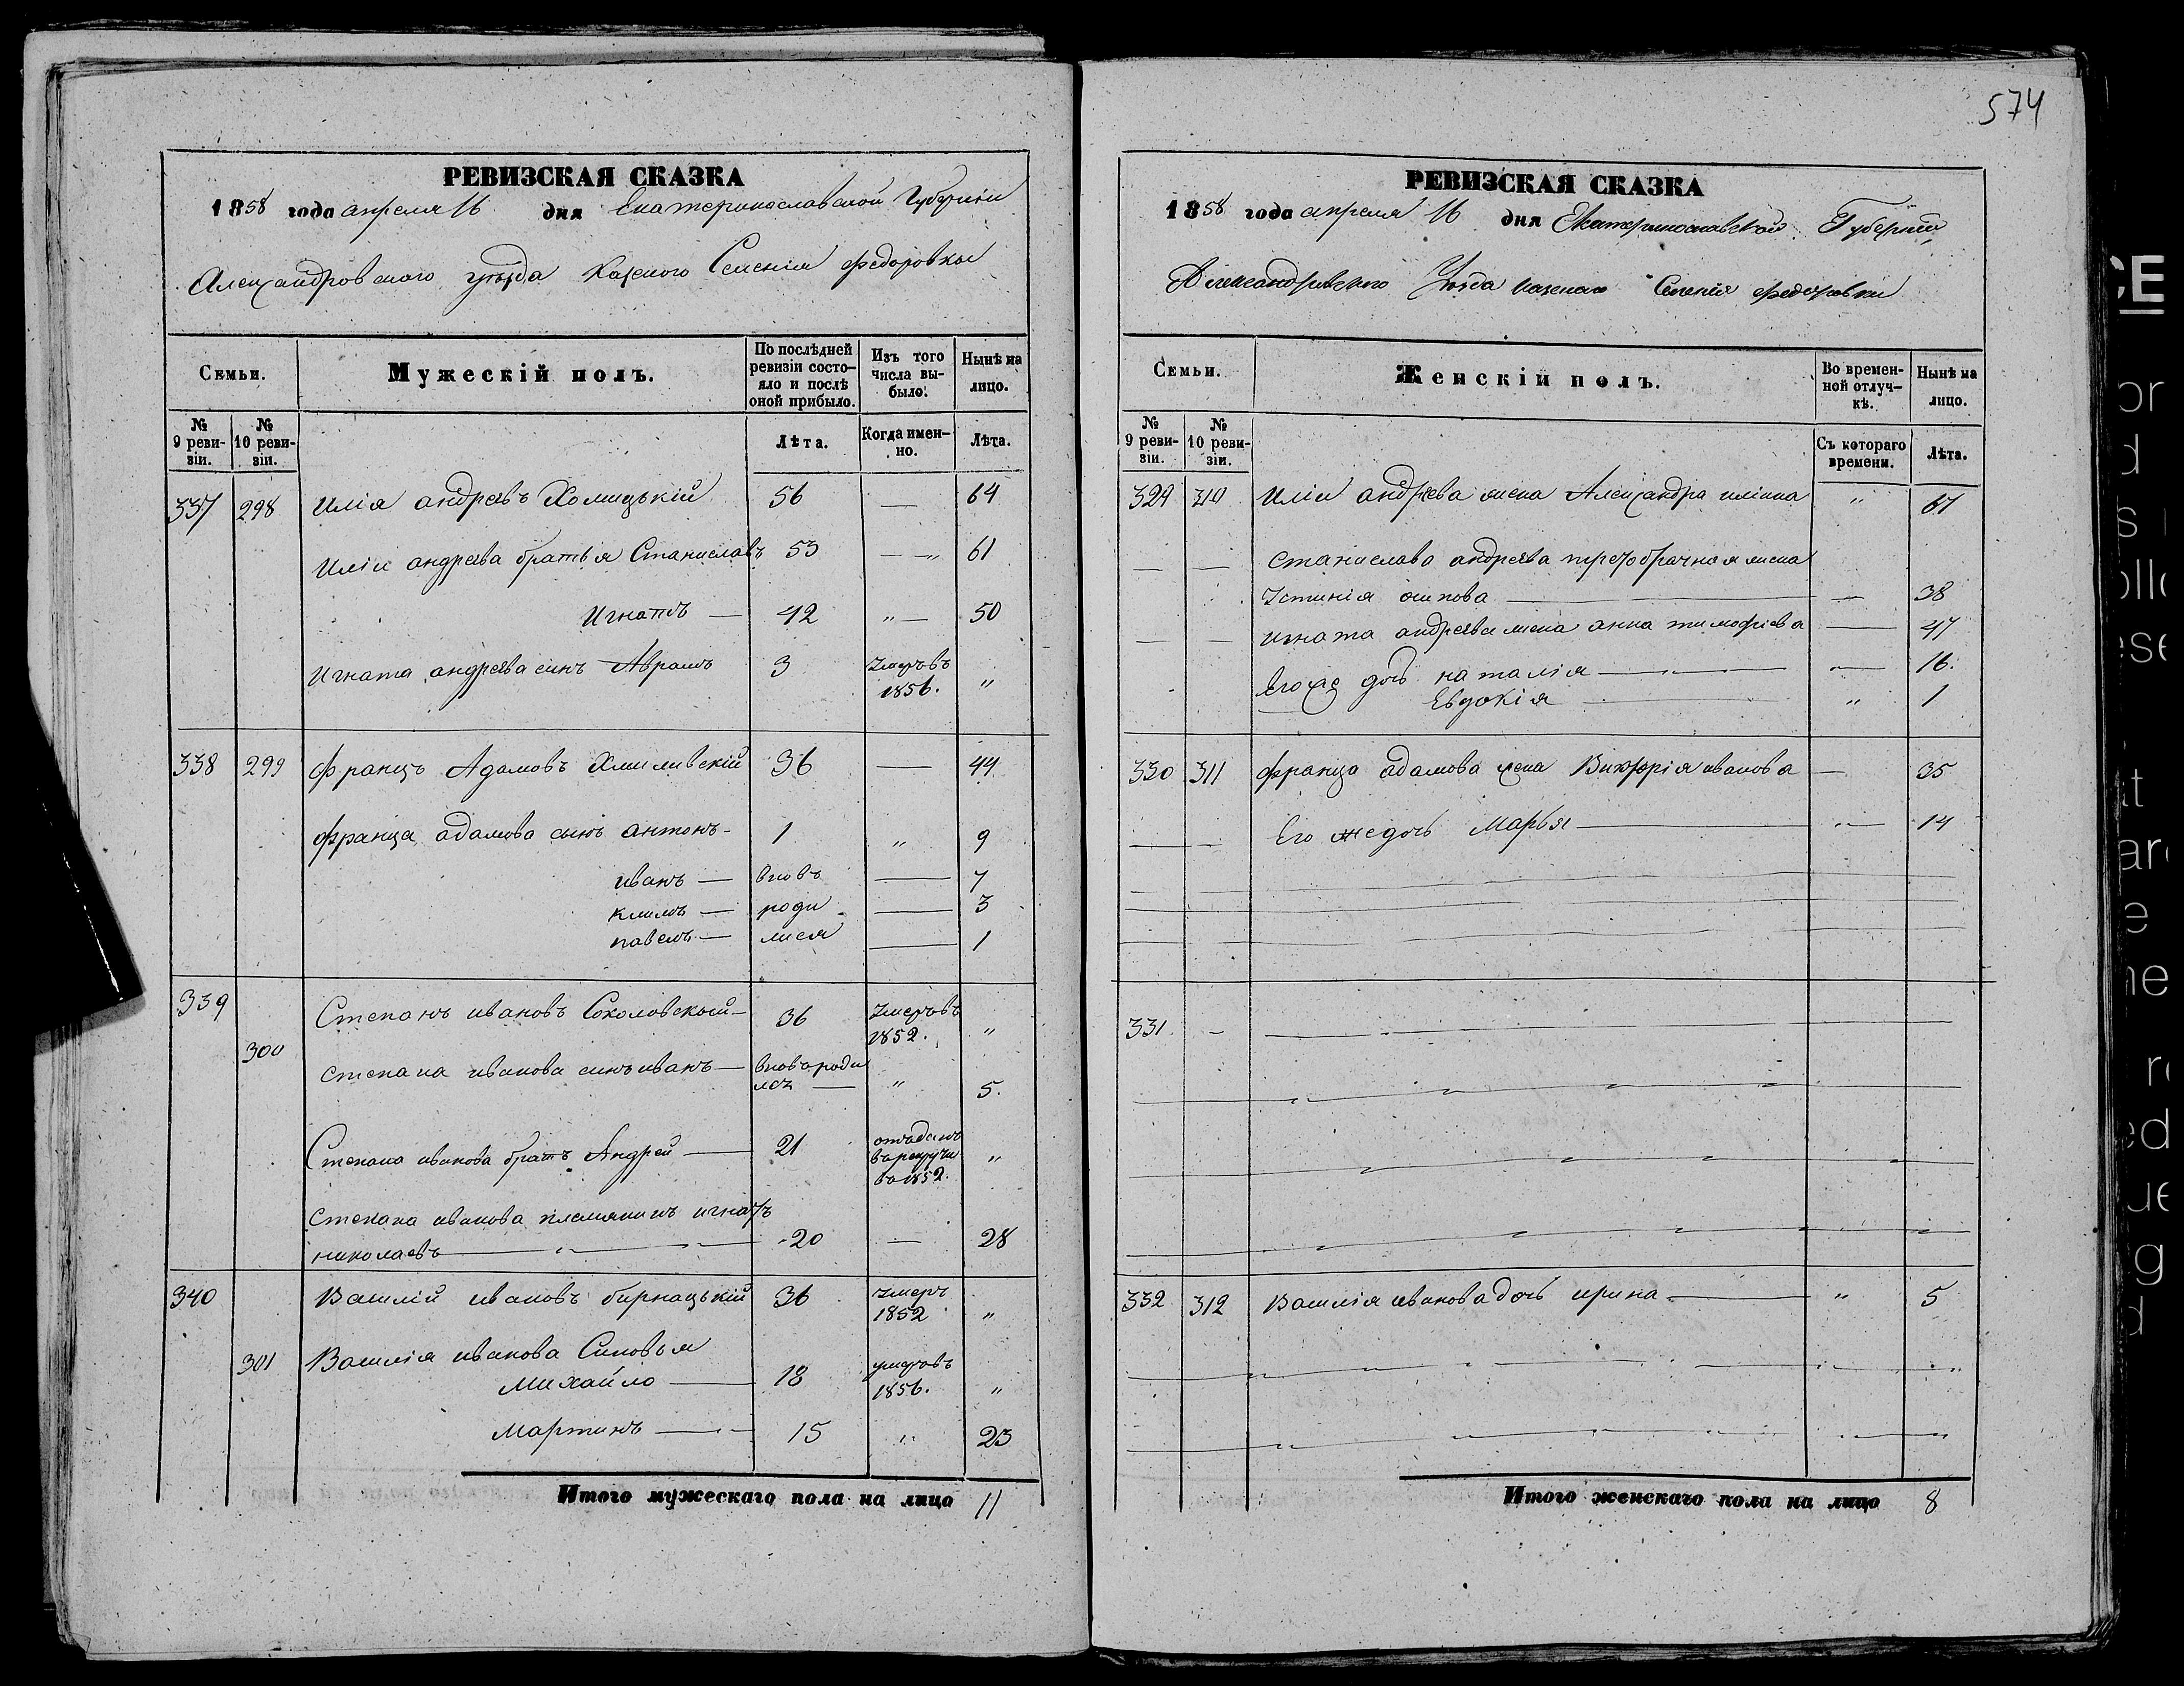 574
РЕВИЗСКАЯ СКАЗКА
1858 года апреля 16 дня Екатеринославской Губернии
Александровского уезда Казеного Селения Федоровки
Семьи. Мужескій полъ. По послѣдней ревизіи состояло и послѣ оной прибыло. Изъ того числа выбыло. Нынѣ на лицо.
№ 9 ревизіи. № 10 ревизіи. Лѣта. Когда именно. Лѣта.
337 298 Илія андреевъ Хомицькій 56 — 64
Иліи андреева братья Станиславъ 53 — „ 61
Игнатъ — 42 „ — 50
Игната андреева синъ Аврамъ 3 Умеръ въ 1856. „
338 299 францъ Адамовъ Хмиливскій 36 — 44
франца адамова сынъ антонъ - 1 „ 9
иванъ — вновъ — 7
климъ — роди — 3
павелъ — лися — 1
339 Степанъ ивановъ Соколовскый — 36 Умеръ въ 1852. „
300 Степана иванова синъ иванъ — вновъ родился — „ 5.
Степана иванова братъ Андрей — 21 отъданъ въ рекруты въ 1852. „
Степана иванова племяникъ игнатъ
николаевъ — „ — 20 — 28
340 Василій ивановъ бирнацькій 36 Умеръ 1852 „
301 Василія иванова Синовья
Михайло — 18 умеръ въ 1856. „
Мартинъ — 15 „ 23
Итого мужескаго пола на лицо 11
РЕВИЗСКАЯ СКАЗКА
1858 года апреля 16 дня Екатеринославской Губерніи,
Александровского Уезда казенаго Селенія федоровки
Семьи. Женскій полъ. Во временной отлучкѣ. Нынѣ на лицо.
№ 9 ревизіи. № 10 ревизіи. Съ котораго времени. Лѣта.
329 310 Иліи андреева жена Александра илінна „ 67
— — Станислава андреева третобрачная жена
Устинія осипова — — 38
— — игната андреева жена анна тимофіева — 47
Его же дочь наталія — — 16.
Евдокія — „ 1
330 311 франца адамова жена Викторія иванова — 35
— — Его же дочь Марья — „ — 14
331. -
332 312 Василія иванова дочь ирина — „ 5
Итого женскаго пола на лицо 8